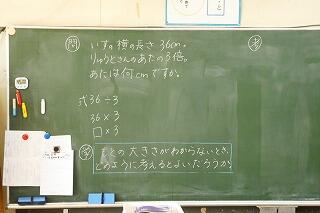 問 いすの横の長さ36cm。
りゅうとさんのあたの3倍。
あたは何cmですか。
式 36÷3
36×3
□×3
学 もとの大きさがわからないとき、
どのように考えるとよいだろうか。
考